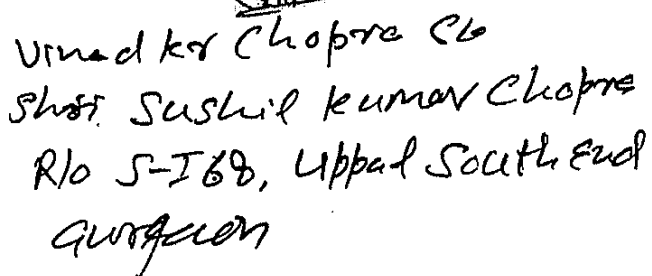 Vinod kr Chopra S/o
Shri. Sushil kumar Chopra
R/o S-I68, Uppal South End
Gurgaon